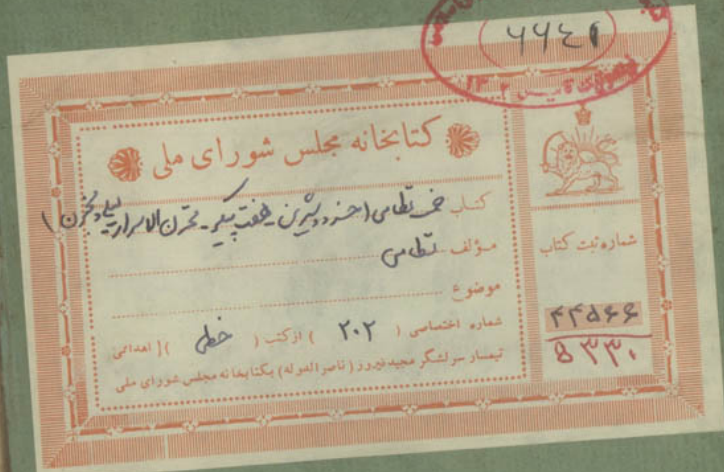 ۶۶۴۱
۱۳۰۲
کتابخانه مجلس شورای ملی
کتاب خمسه نظامی (خسرو و شیرین - هفت پیکر - مخزن الاسرار لیلی و مجنون)
مؤلف نظامی
موضوع
شماره اختصاصی ( ۲۰۲ ) از کتب ( خطی ) اهدائی
تیمسار سرلشگر مجید فیروز (ناصرالدوله) بکتابخانه مجلس شورای ملی
شماره ثبت کتاب
۴۴۵۶۶
۵۳۳۰